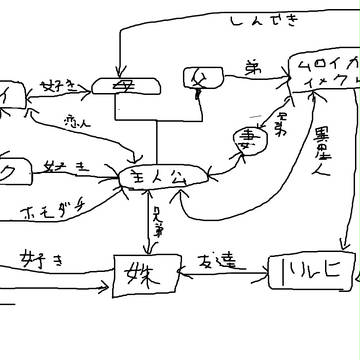 しんせき
ムロイガ
イ
好き
母
父
弟
恋人
妻
兄弟
異星人
ク
好き
主人公
ホモダチ
兄弟
好き
妹
友達
リルヒ